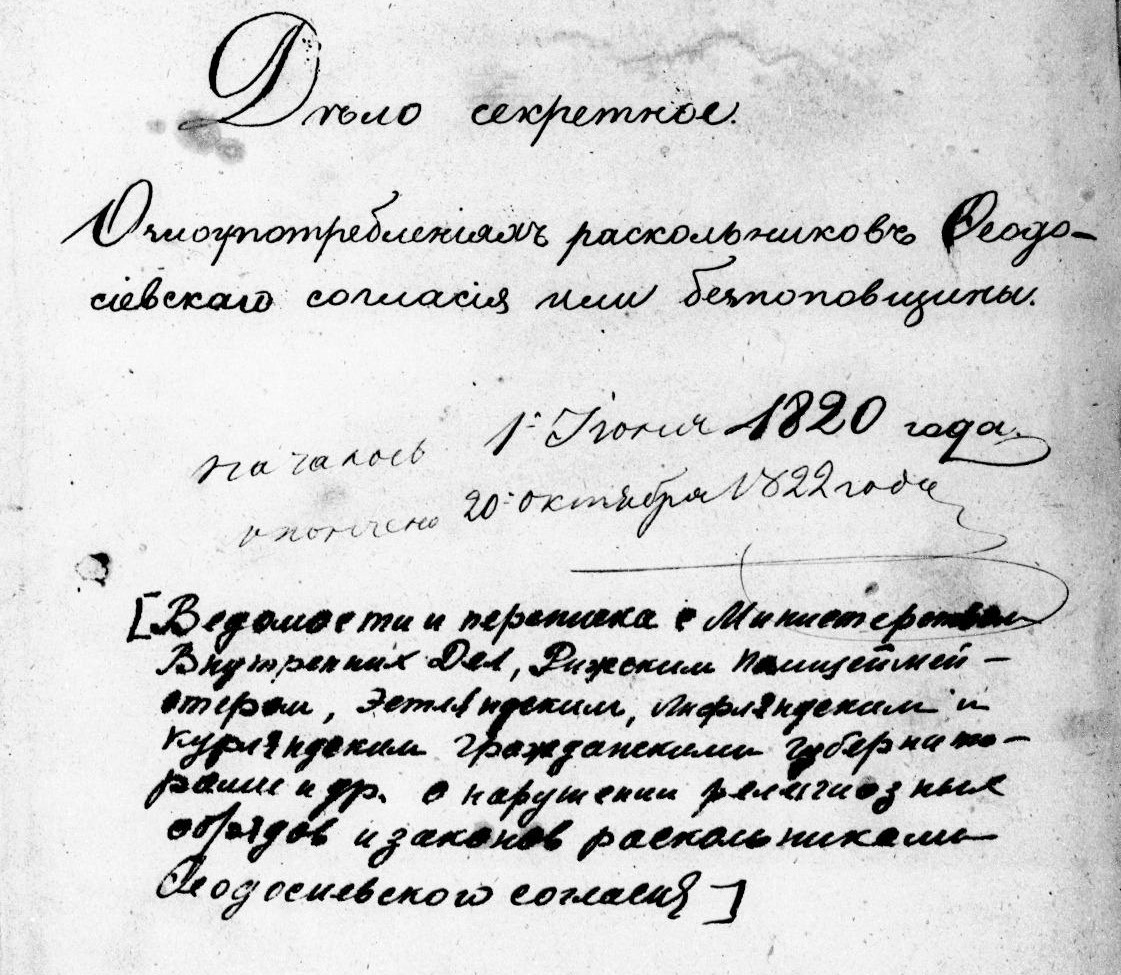 Дѣло секретное.
О злоупотребленіяхъ раскольниковъ Ѳеодо-
сіевскаго согласія или безпоповщины.
началось 1º Іюня 1820 года.
окончено 20º октября 1822 года
[Ведомости и переписка с Министерством
Внутренних Дел, Рижским полицеймей-
стером, Эстляндским, Лифляндским и
Курляндским гражданскими губернато-
рами и др. о нарушении религиозных
обрядов и законов раскольниками
Феодосиевского согласия]